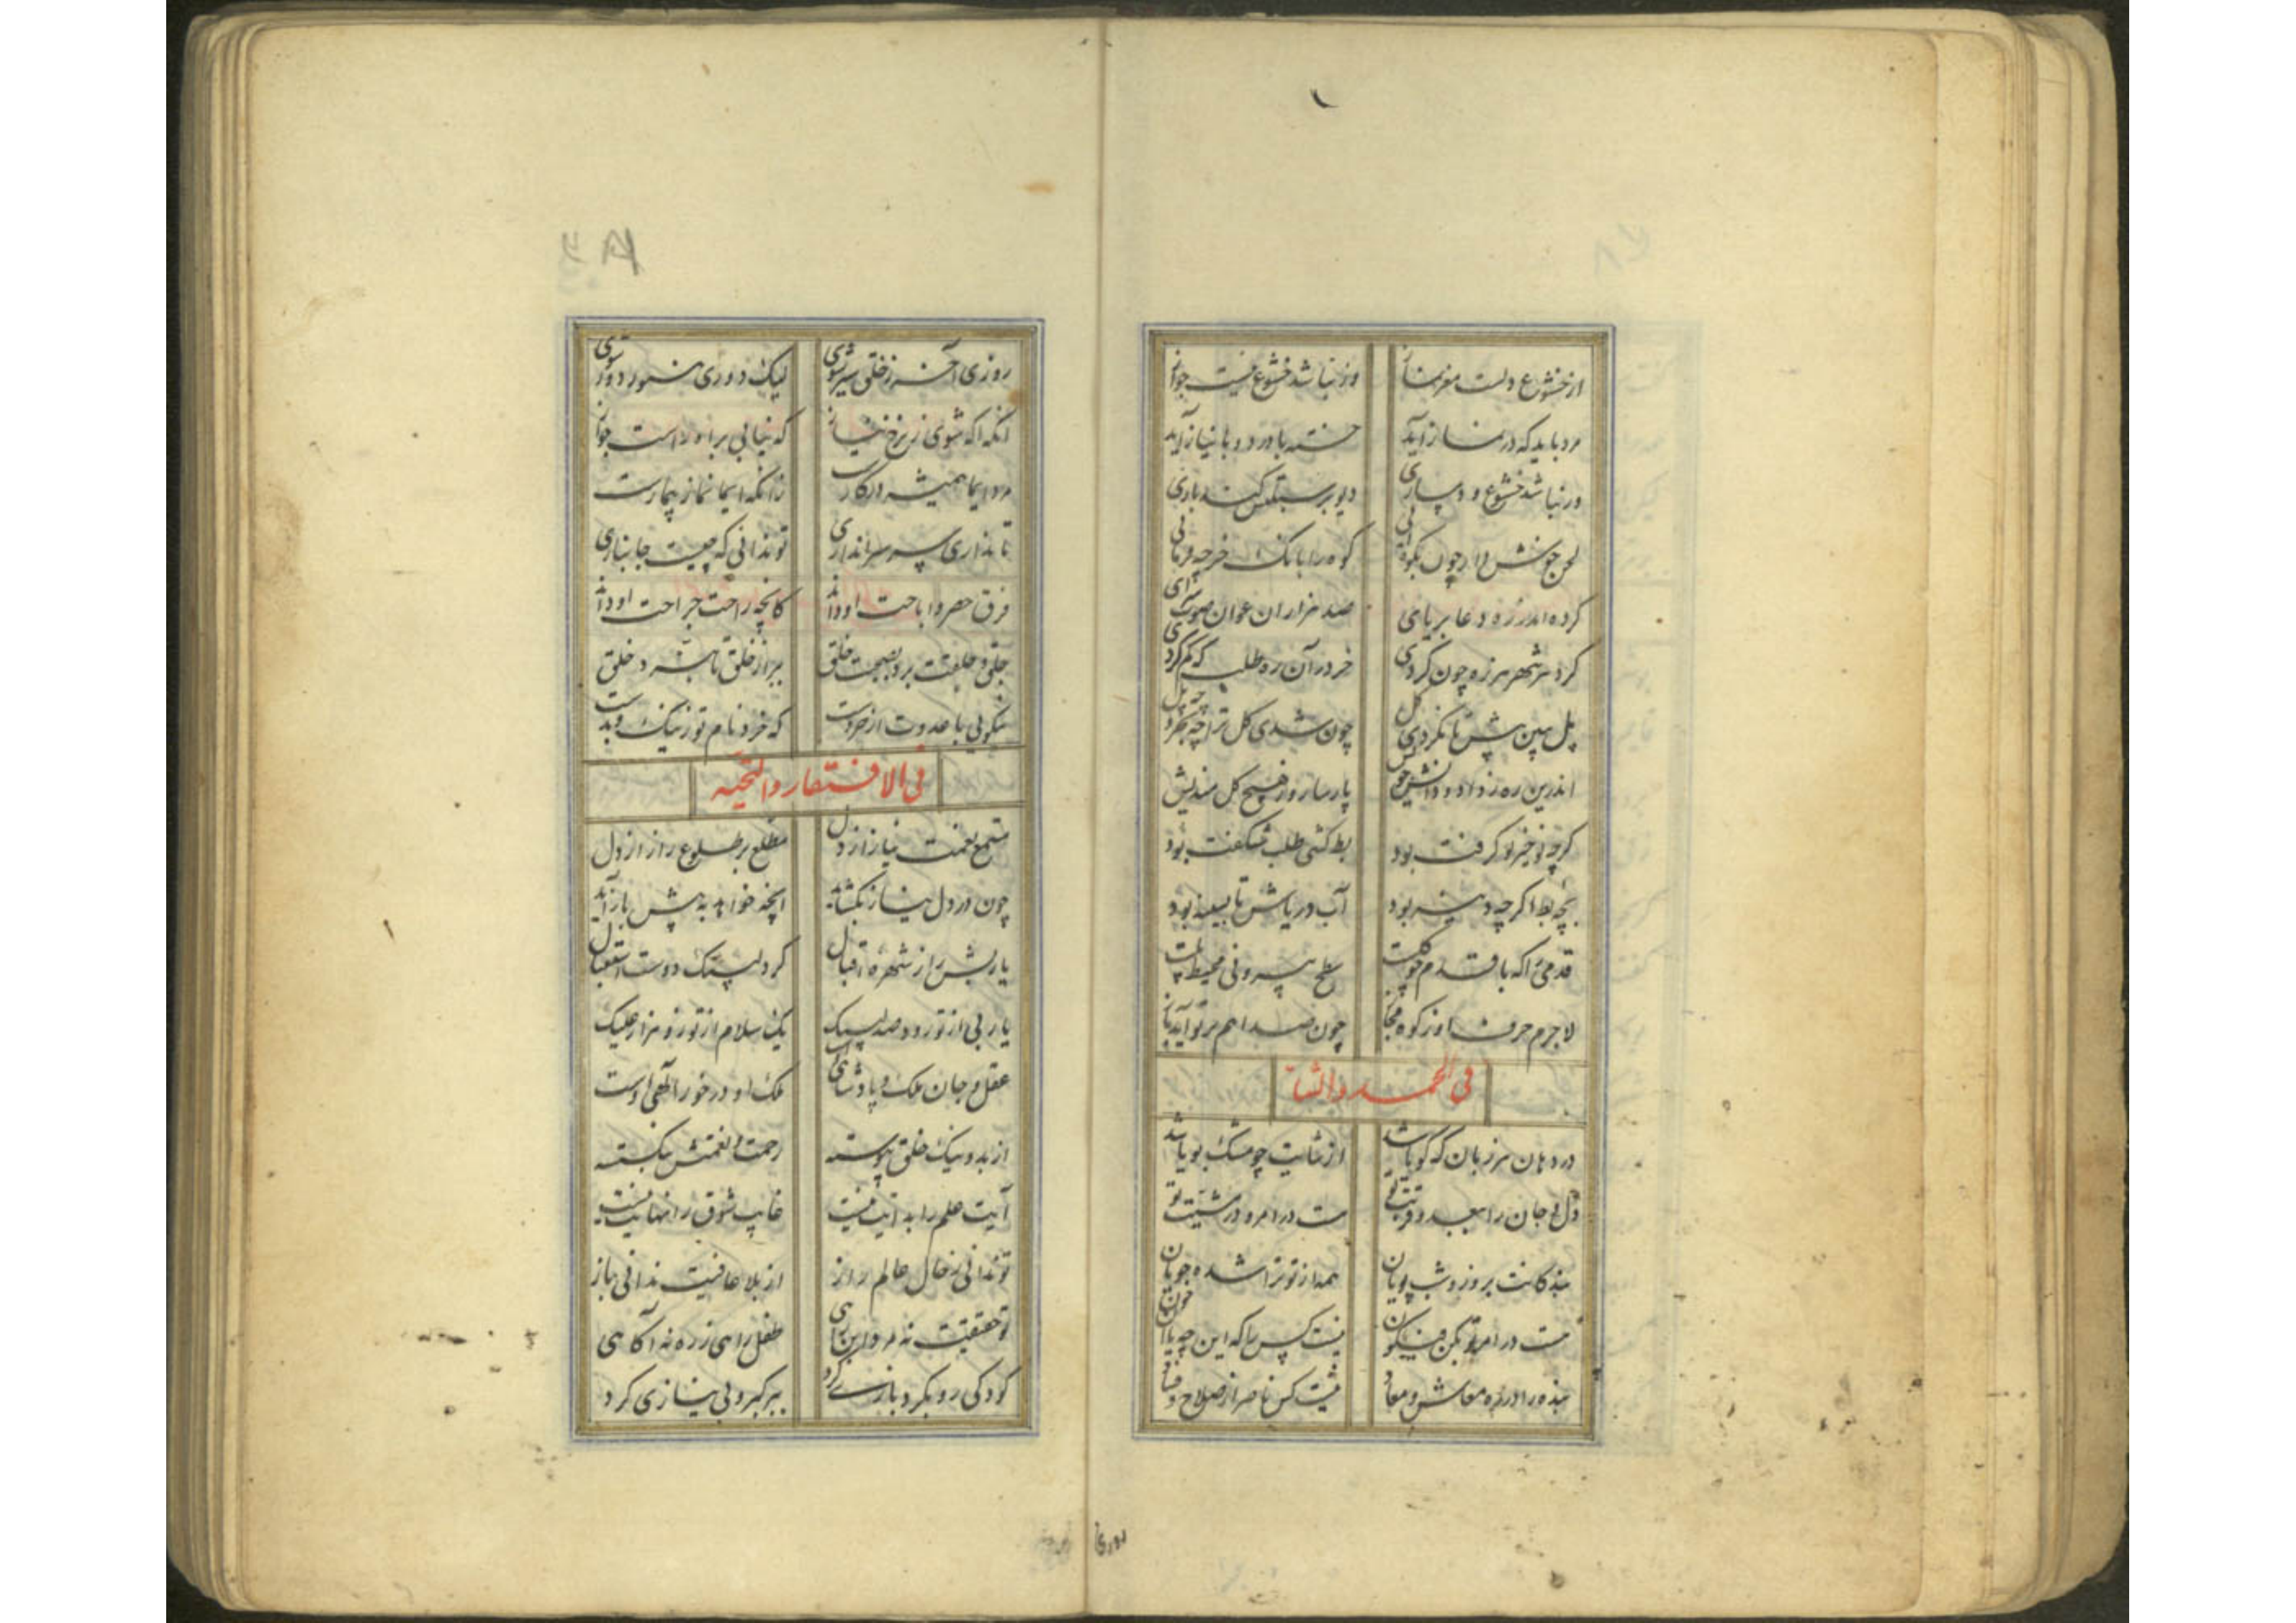 از خشوع دلست مغز نماز ور نباشد خشوع نیست جواز
مرد باید که در نماز آید خسته با درد و با نیاز آید
ور نباشد خشوع و دمسازی دیو بر سبلتش کند بازی
لحن خوش دار چون بکوه آیی کوه را بانک خر چه فرمایی
کرده اندر ره دعا بر پای صد هزاران عوان صوت سرای
کرد هر شهر هرزه چون کردی خر در آن ره طلب که کم کردی
پل همین پیش تا نکردی کل چون شدی کل ترا چه بحر و چه پل
اندرین ره ز داد و دانش خویش بار ساز و ز هیچ کل مندیش
کرچه نوخیز نو کرفت بود بط کشی طلب شکفت بود
بچه بط اکر چه دینه بود آب دریاش تا بسینه بود
قدمی را که با قدم خو کست سطح بیرونی محیط پلست
لاجرم حرف او ز کوه مجاز چون صدا هم بر تو آید باز
فی الحمد والثنا
در دهان هر زبان که کویا شد از ثنایت چو مشک بویا شد
دل و جان را ببعد و قربت تو هست در امر و در مشیت تو
بندکانت بروز و شب پویان همه از تو ترا شده جویان
هست در امر تو بکن فیکون نیست کس را که این چه یا آن چون
بنده را در ره معاش و معاد نیست کس ناصر از صلاح و فساد
روزی
روزی آخر ز خلق سیر شوی لیک دوری هنوز دور شوی
آنکه اکه شوی ز نرخ نیاز که نیابی براه راست جواز
مرد ایما همیشه در کارست زانکه ایما نماز بیمارست
تا بنداری سپر سراندازی تو ندانی که چیست جانبازی
فرق حصر و اباحت او داند کانچه راحت جراحت او داند
جلق و جلفیت برد بصحبت خلق ببر از خلق تا نبرد حلق
نیکویی با عدوت از خردست که خرد نام تو ز نیک و بدست
فی الافتقار والتحیه
مستمع نغمت نیاز از دل مطلع بر طلوع راز از دل
چون در دل نیاز بکشاید آنچه خواهد به پیش باز آید
یاربش را ز شهره اقبال کرد لبیک دوست استقبال
یاربی از تو زو دو صد لبیک یک سلام از تو زو هزار علیک
عقل و جان ملک و پادشاهی اوست ملک او در خور الهی اوست
از بد و نیک خلق پیوسته رحمت و نعمتش بنکسسته
آیت علم را بدایت نیست غایت شوق را نهایت نیست
تو ندانی ز حال عالم راز از بلا عافیت ندانی باز
تو حقیقت نه مرد این راهی طفل راهی ز ره نه آکاهی
کودکی رو بکرد بازی کرد ببر کبر و بی نیازی کرد